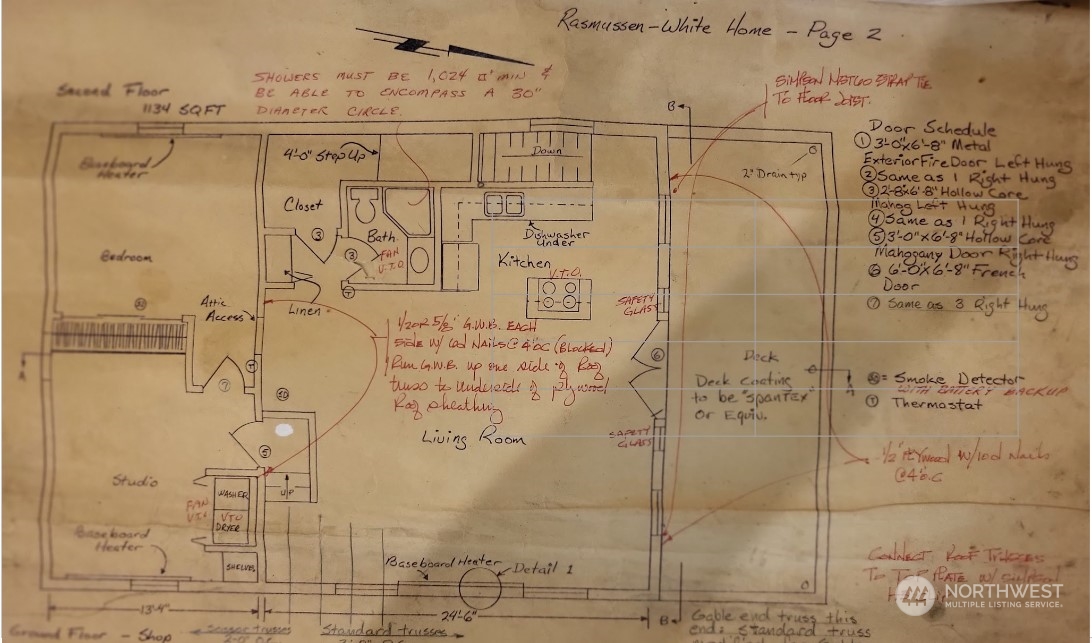 Rasmussen-White Home - Page 2
SHOWERS MUST BE 1,024 □" MIN &
BE ABLE TO ENCOMPASS A 30"
DIAMETER CIRCLE.
Second Floor
1134 SQFT
Baseboard
Heater
4'-0" Step Up
Down
B
SIMPSON
STRAP TIE
TO FLOOR JOIST.
Door Schedule
① 3'-0"x6'-8" Metal
Exterior Fire Door Left Hung
② Same as 1 Right Hung
③ 2'-8"x6'-8" Hollow Core
Mahog Left Hung
④ Same as 1 Right Hung
⑤ 3'-0"x6'-8" Hollow Core
Mahogany Door Right Hung
⑥ 6'-0"x6'-8" French
Door
⑦ Same as 3 Right Hung
2" Drain typ
Closet
③
Bath
FAN
V.T.O.
③
Dishwasher
Under
Kitchen
V.T.O.
Bedroom
SD
Attic
Access
Linen
T
SAFETY
GLASS
1/2 OR 5/8" G.W.B. EACH
SIDE W/ 6d NAILS @ 4" OC (BLOCKED)
Run G.W.B. up one side of Roof
truss to underside of plywood
Roof sheathing
⑥
Deck
Deck coating
to be "spantex"
or Equiv.
A
A
⑦
T
SD = Smoke Detector
WITH BATTERY BACKUP
T Thermostat
SD
Living Room
SAFETY
GLASS
⑤
UP
1/2" PLYWOOD W/10d Nails
@ 4" O.C
Studio
FAN
WASHER
VTO
DRYER
SHELVES
Baseboard
Heater
Baseboard Heater
Detail 1
CONNECT ROOF TRUSSES
TO TOP PLATE W/ SIMPSON
13'-4"
24'-6"
B
Ground Floor - Shop
Standard trusses
Gable end truss this
end; standard truss
NORTHWEST
MULTIPLE LISTING SERVICE